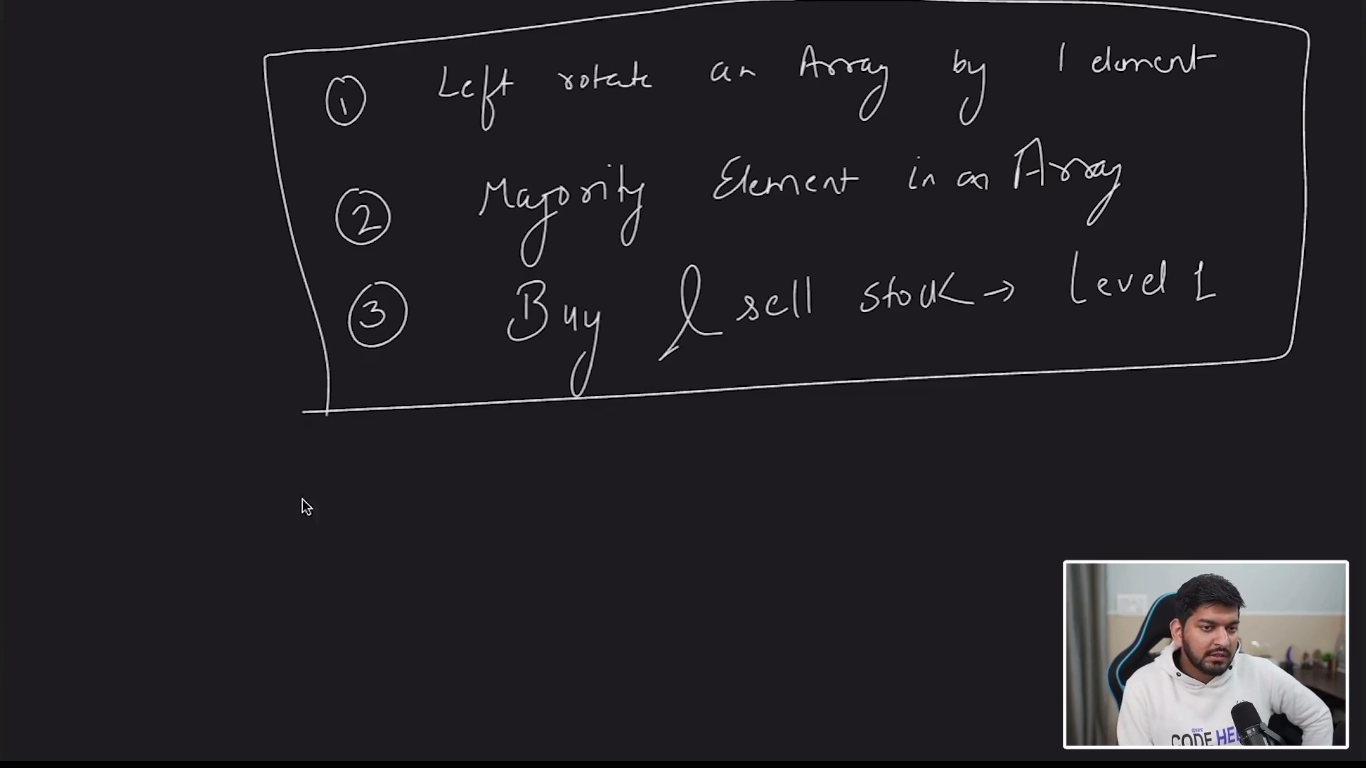 ① Left rotate an Array by 1 element
② Majority Element in an Array
③ Buy & sell stock → Level 1
CODE HE